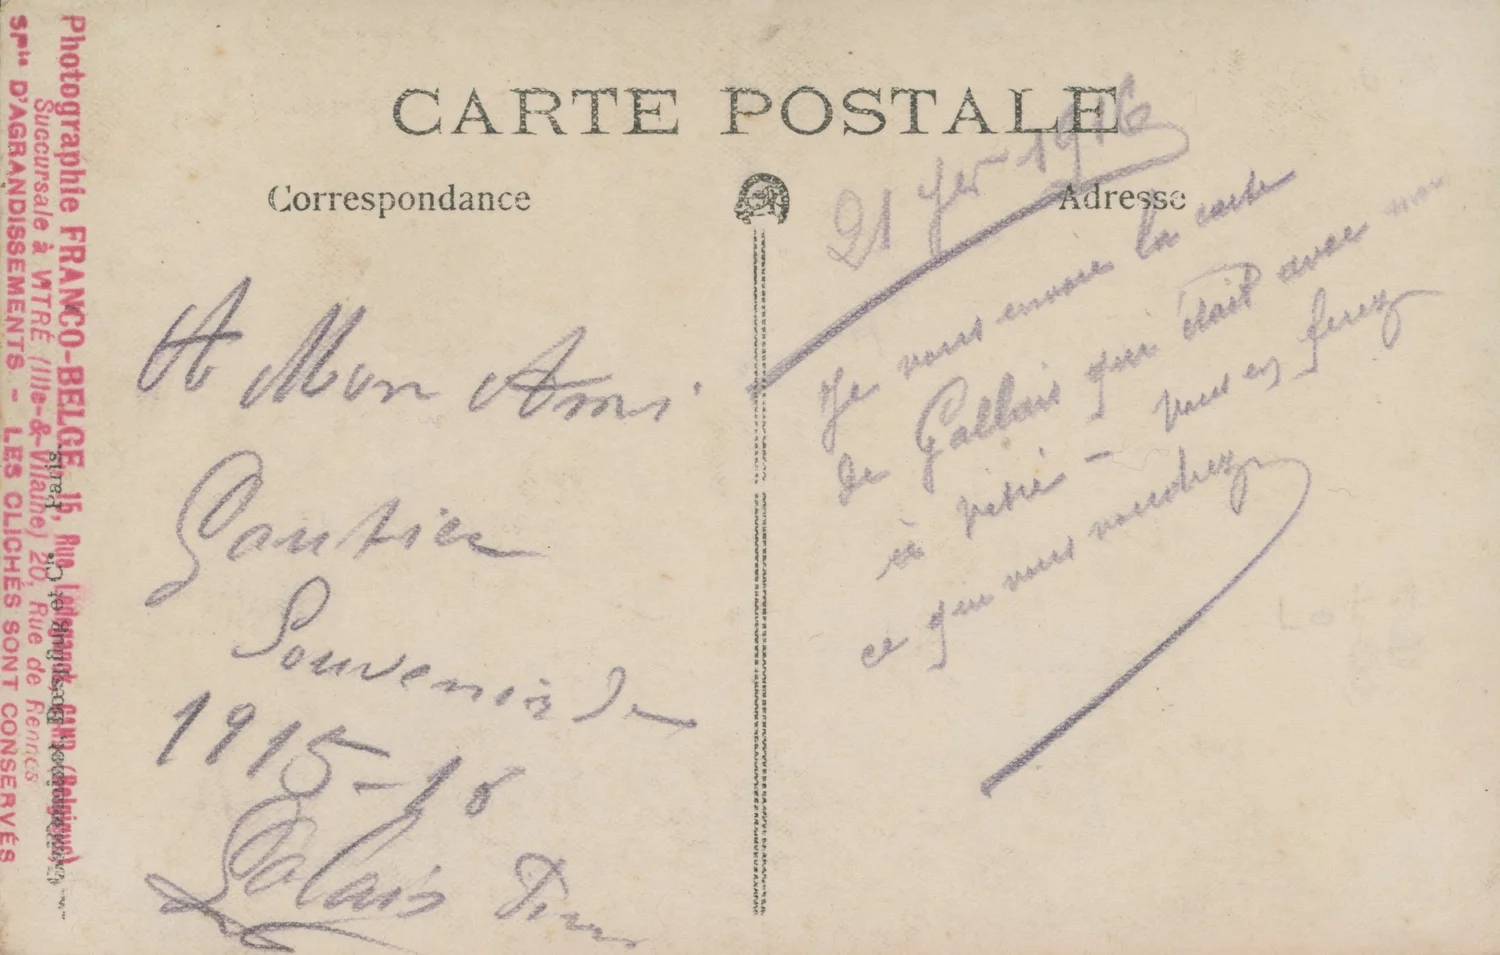 CARTE POSTALE
Correspondance
Adresse
A Mon Ami
Gautier
Souvenir de
1915-16
21 1916
Je vous envoie la carte
de qui était avec
à Vitré - vous en ferez
ce que vous voudrez
Photographie FRANCO-BELGE, 15, Rue GAND (Belgique)
Succursale à VITRÉ (Ille-&-Vilaine) 20, Rue de Rennes
SPté D'AGRANDISSEMENTS - LES CLICHÉS SONT CONSERVÉS
Paris